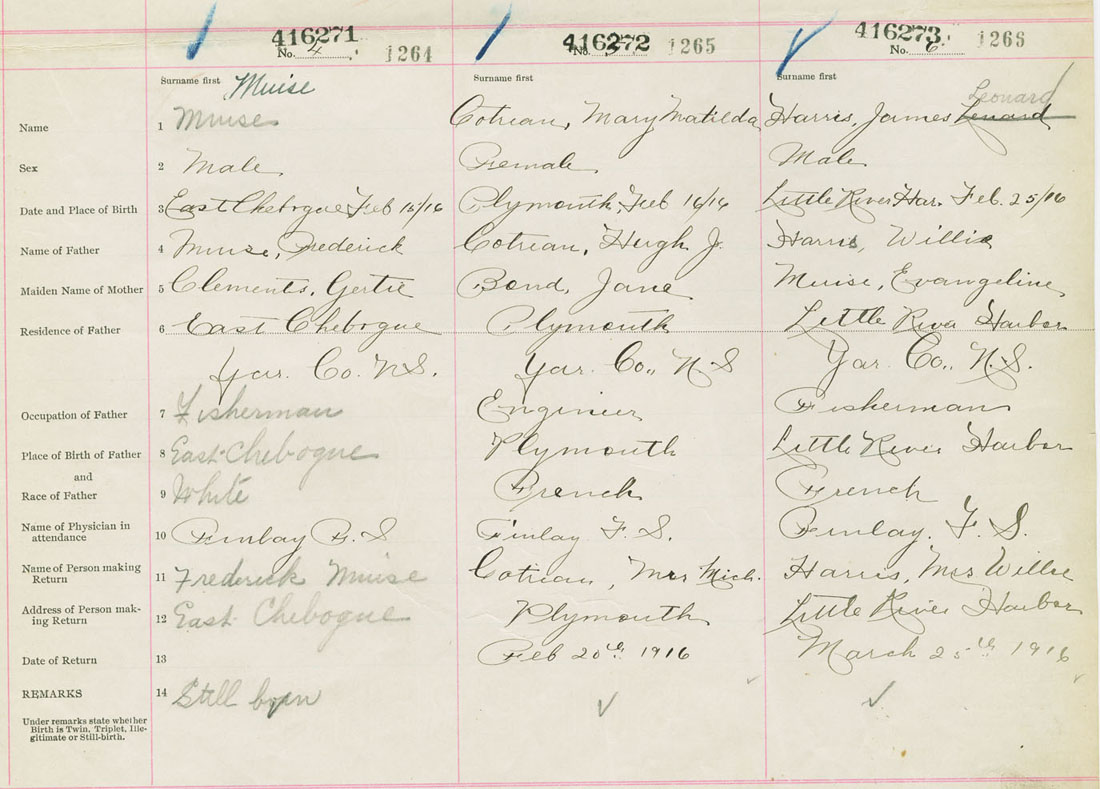 416271 416272 416273
No. 4 1264 No. 1265 No. 6 1266
Surname first Surname first Surname first
Muise Leonard
Name 1 Muise Cotreau, Mary Matilda Harris, James Lenard
Sex 2 Male Female Male
Date and Place of Birth 3 East Chebogue Feb 15/16 Plymouth, Feb 16/16 Little River Har. Feb. 25/16
Name of Father 4 Muise, Frederick Cotreau, Hugh J. Harris, Willie
Maiden Name of Mother 5 Clements, Gertie Bond, Jane Muise, Evangeline
Residence of Father 6 East Chebogue Plymouth Little River Harbor
Yar. Co. N.S. Yar. Co., N.S Yar. Co., N.S.
Occupation of Father 7 Fisherman Engineer Fisherman
Place of Birth of Father 8 East Chebogue Plymouth Little River Harbor
and
Race of Father 9 White French French
Name of Physician in
attendance 10 Finlay F. S Finlay F. S. Finlay. F. S.
Name of Person making
Return 11 Frederick Muise Cotreau, Mrs Mich. Harris, Mrs Willie
Address of Person mak-
ing Return 12 East Chebogue Plymouth Little River Harbor
Date of Return 13 Feb 20th 1916 March 25th 1916
REMARKS 14 Still born
Under remarks state whether
Birth is Twin, Triplet, Ille-
gitimate or Still-birth.